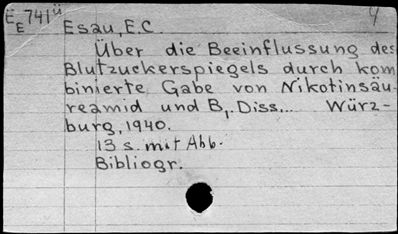 EE 741ü
Esau, E.C.
Über die Beeinflussung des
Blutzuckerspiegels durch kom
binierte Gabe von Nikotinsäu-
reamid und B1. Diss... Würz-
burg, 1940.
13 s. mit Abb.
Bibliogr.